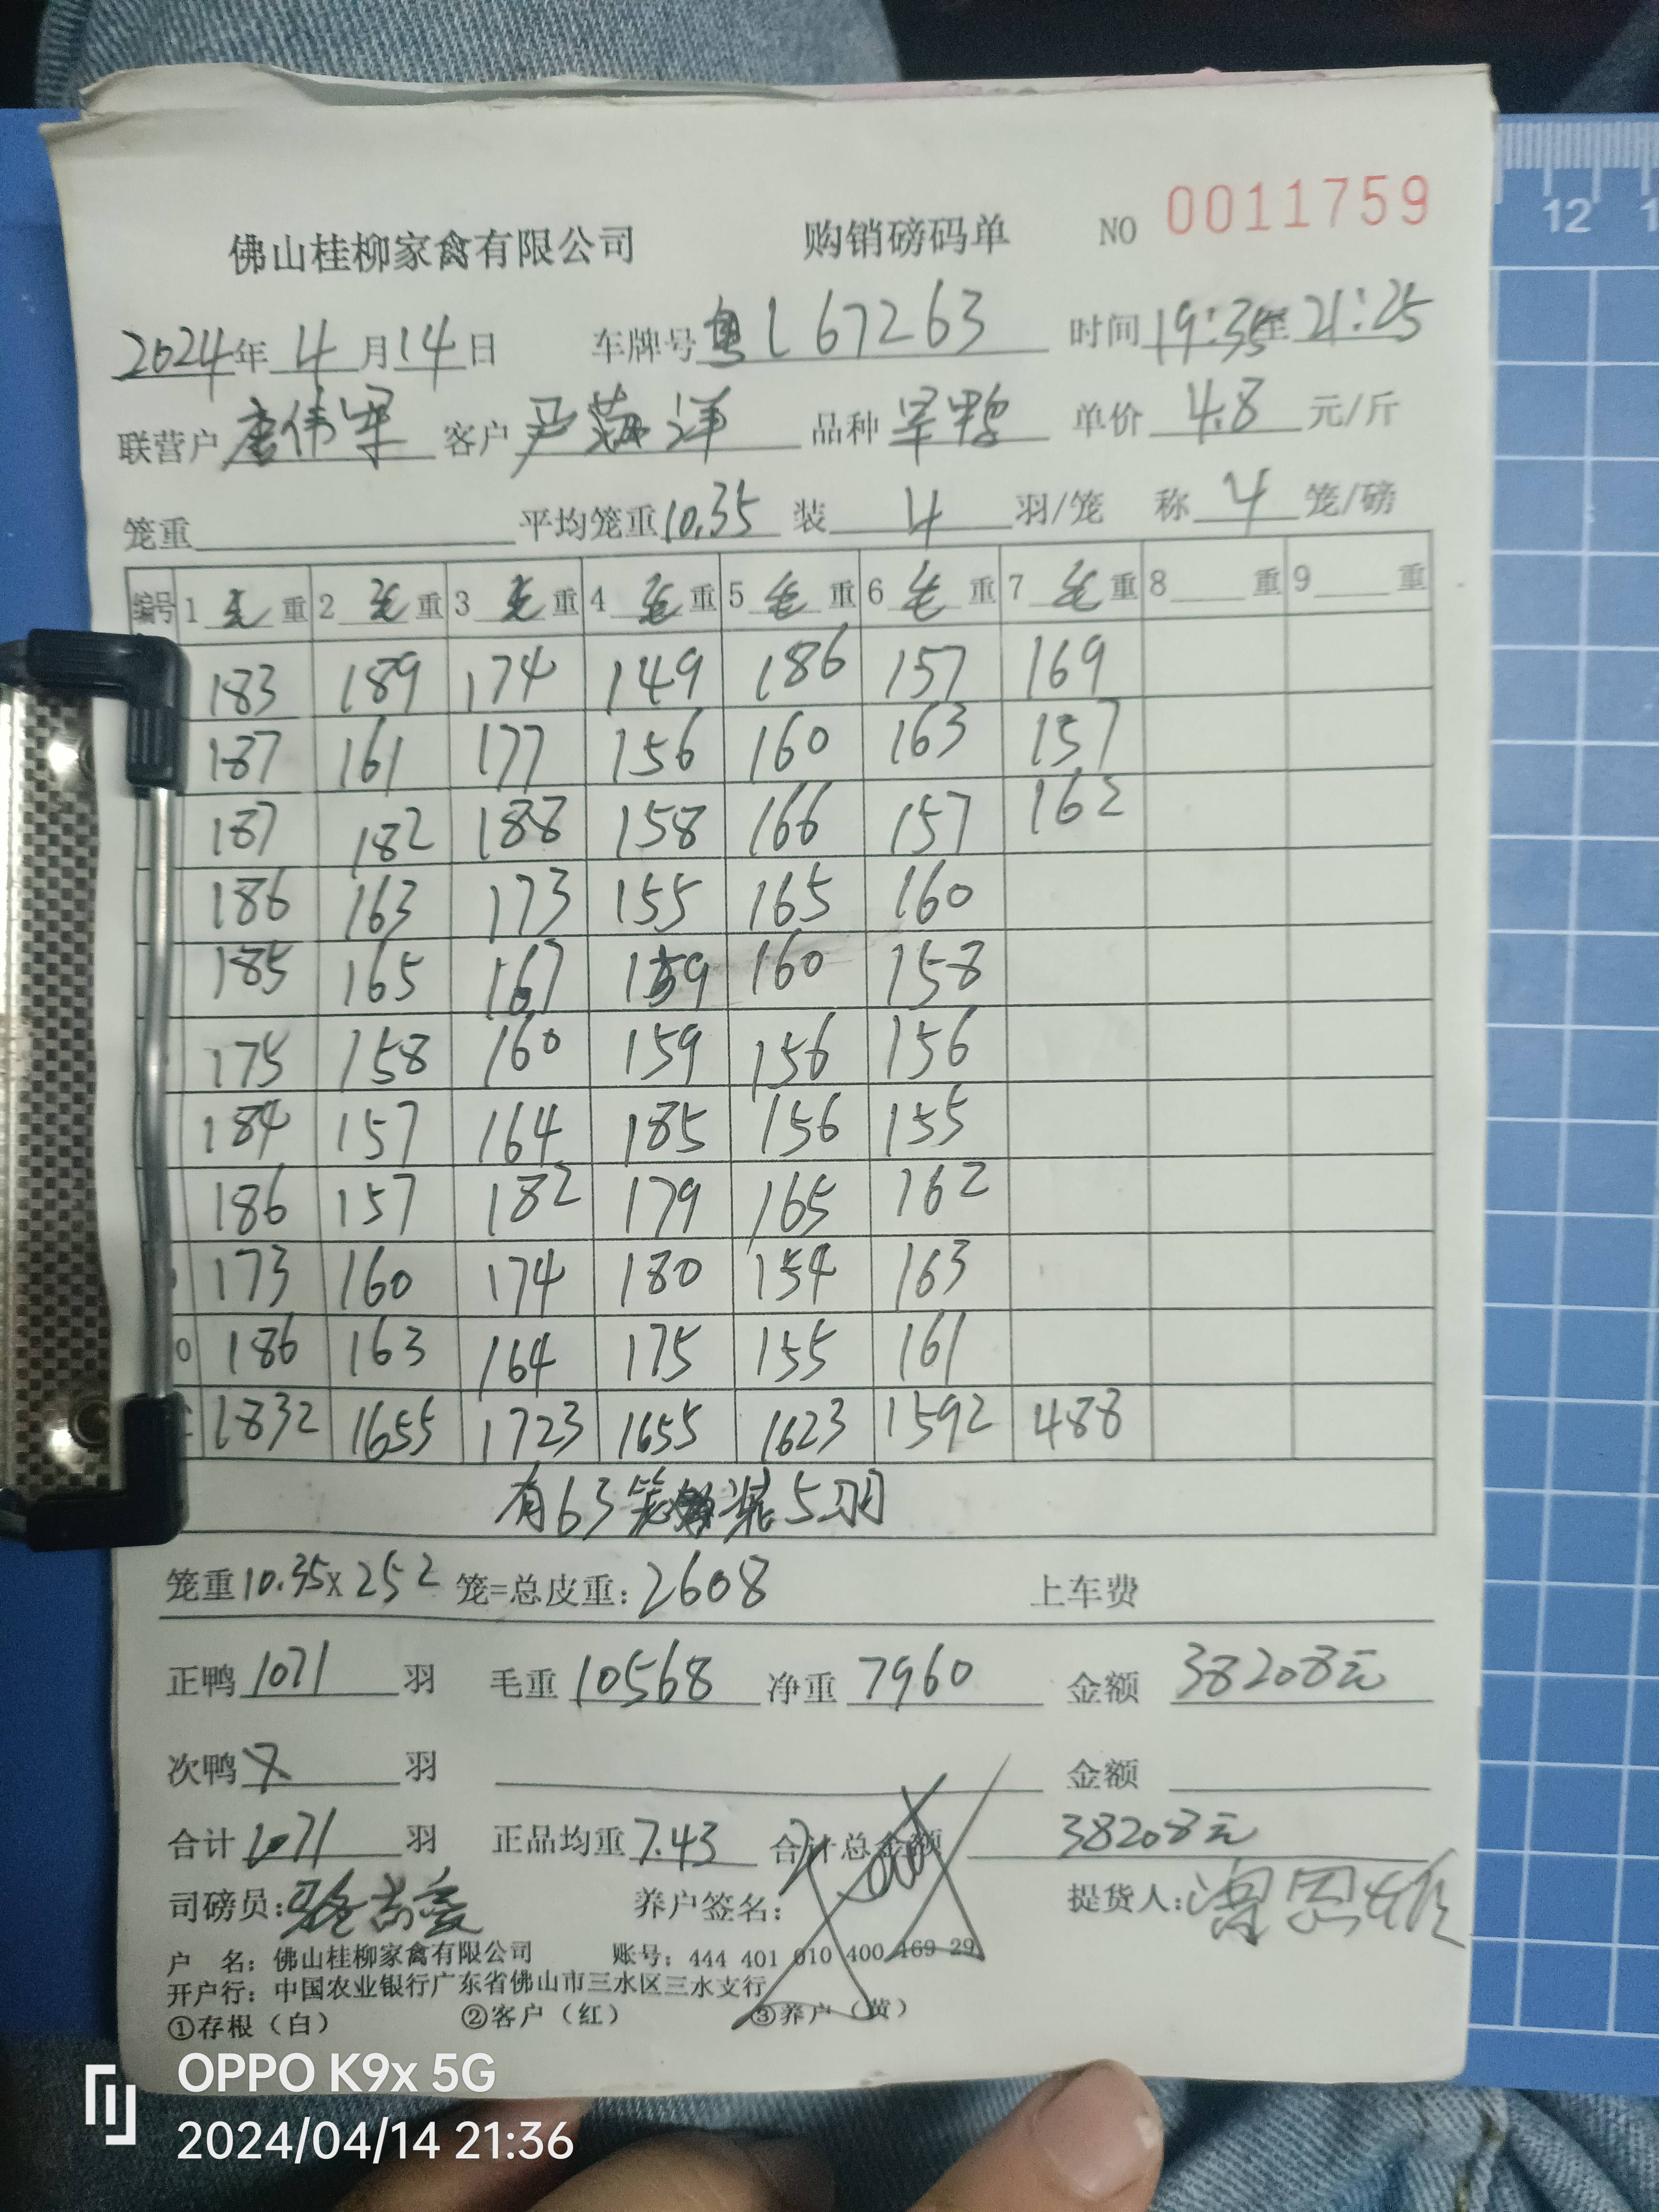 佛山桂柳家禽有限公司 购销磅码单 NO 0011759
2024年 4 月 14 日 车牌号 粤L67263 时间 19:35 至 21:25
联营户 唐伟军 客户 严 洋 品种 单价 4.8 元/斤
笼重 平均笼重 10.35 装 4 羽/笼 称 4 笼/磅
编号 1 毛 重 2 毛 重 3 毛 重 4 毛 重 5 毛 重 6 毛 重 7 毛 重 8 重 9 重
183 189 174 149 186 157 169
187 161 177 156 160 163 157
187 182 188 158 166 157 162
186 163 173 155 165 160
185 165 167 159 160 158
175 158 160 159 156 156
184 157 164 185 156 155
186 157 182 179 165 162
173 160 174 180 154 163
0 186 163 164 175 155 161
1832 1655 1723 1655 1623 1592 488
有63笼 装5羽
笼重 10.35 x 252 笼=总皮重: 2608 上车费
正鸭 1071 羽 毛重 10568 净重 7960 金额 38208元
次鸭 羽 金额
合计 1071 羽 正品均重 7.43 合计总金额 38208元
司磅员: 养户签名: 提货人:
户 名: 佛山桂柳家禽有限公司 账号: 444 401 010 400 469 29
开户行: 中国农业银行广东省佛山市三水区三水支行
①存根（白） ②客户（红） ③养户（黄）
OPPO K9x 5G
2024/04/14 21:36
12